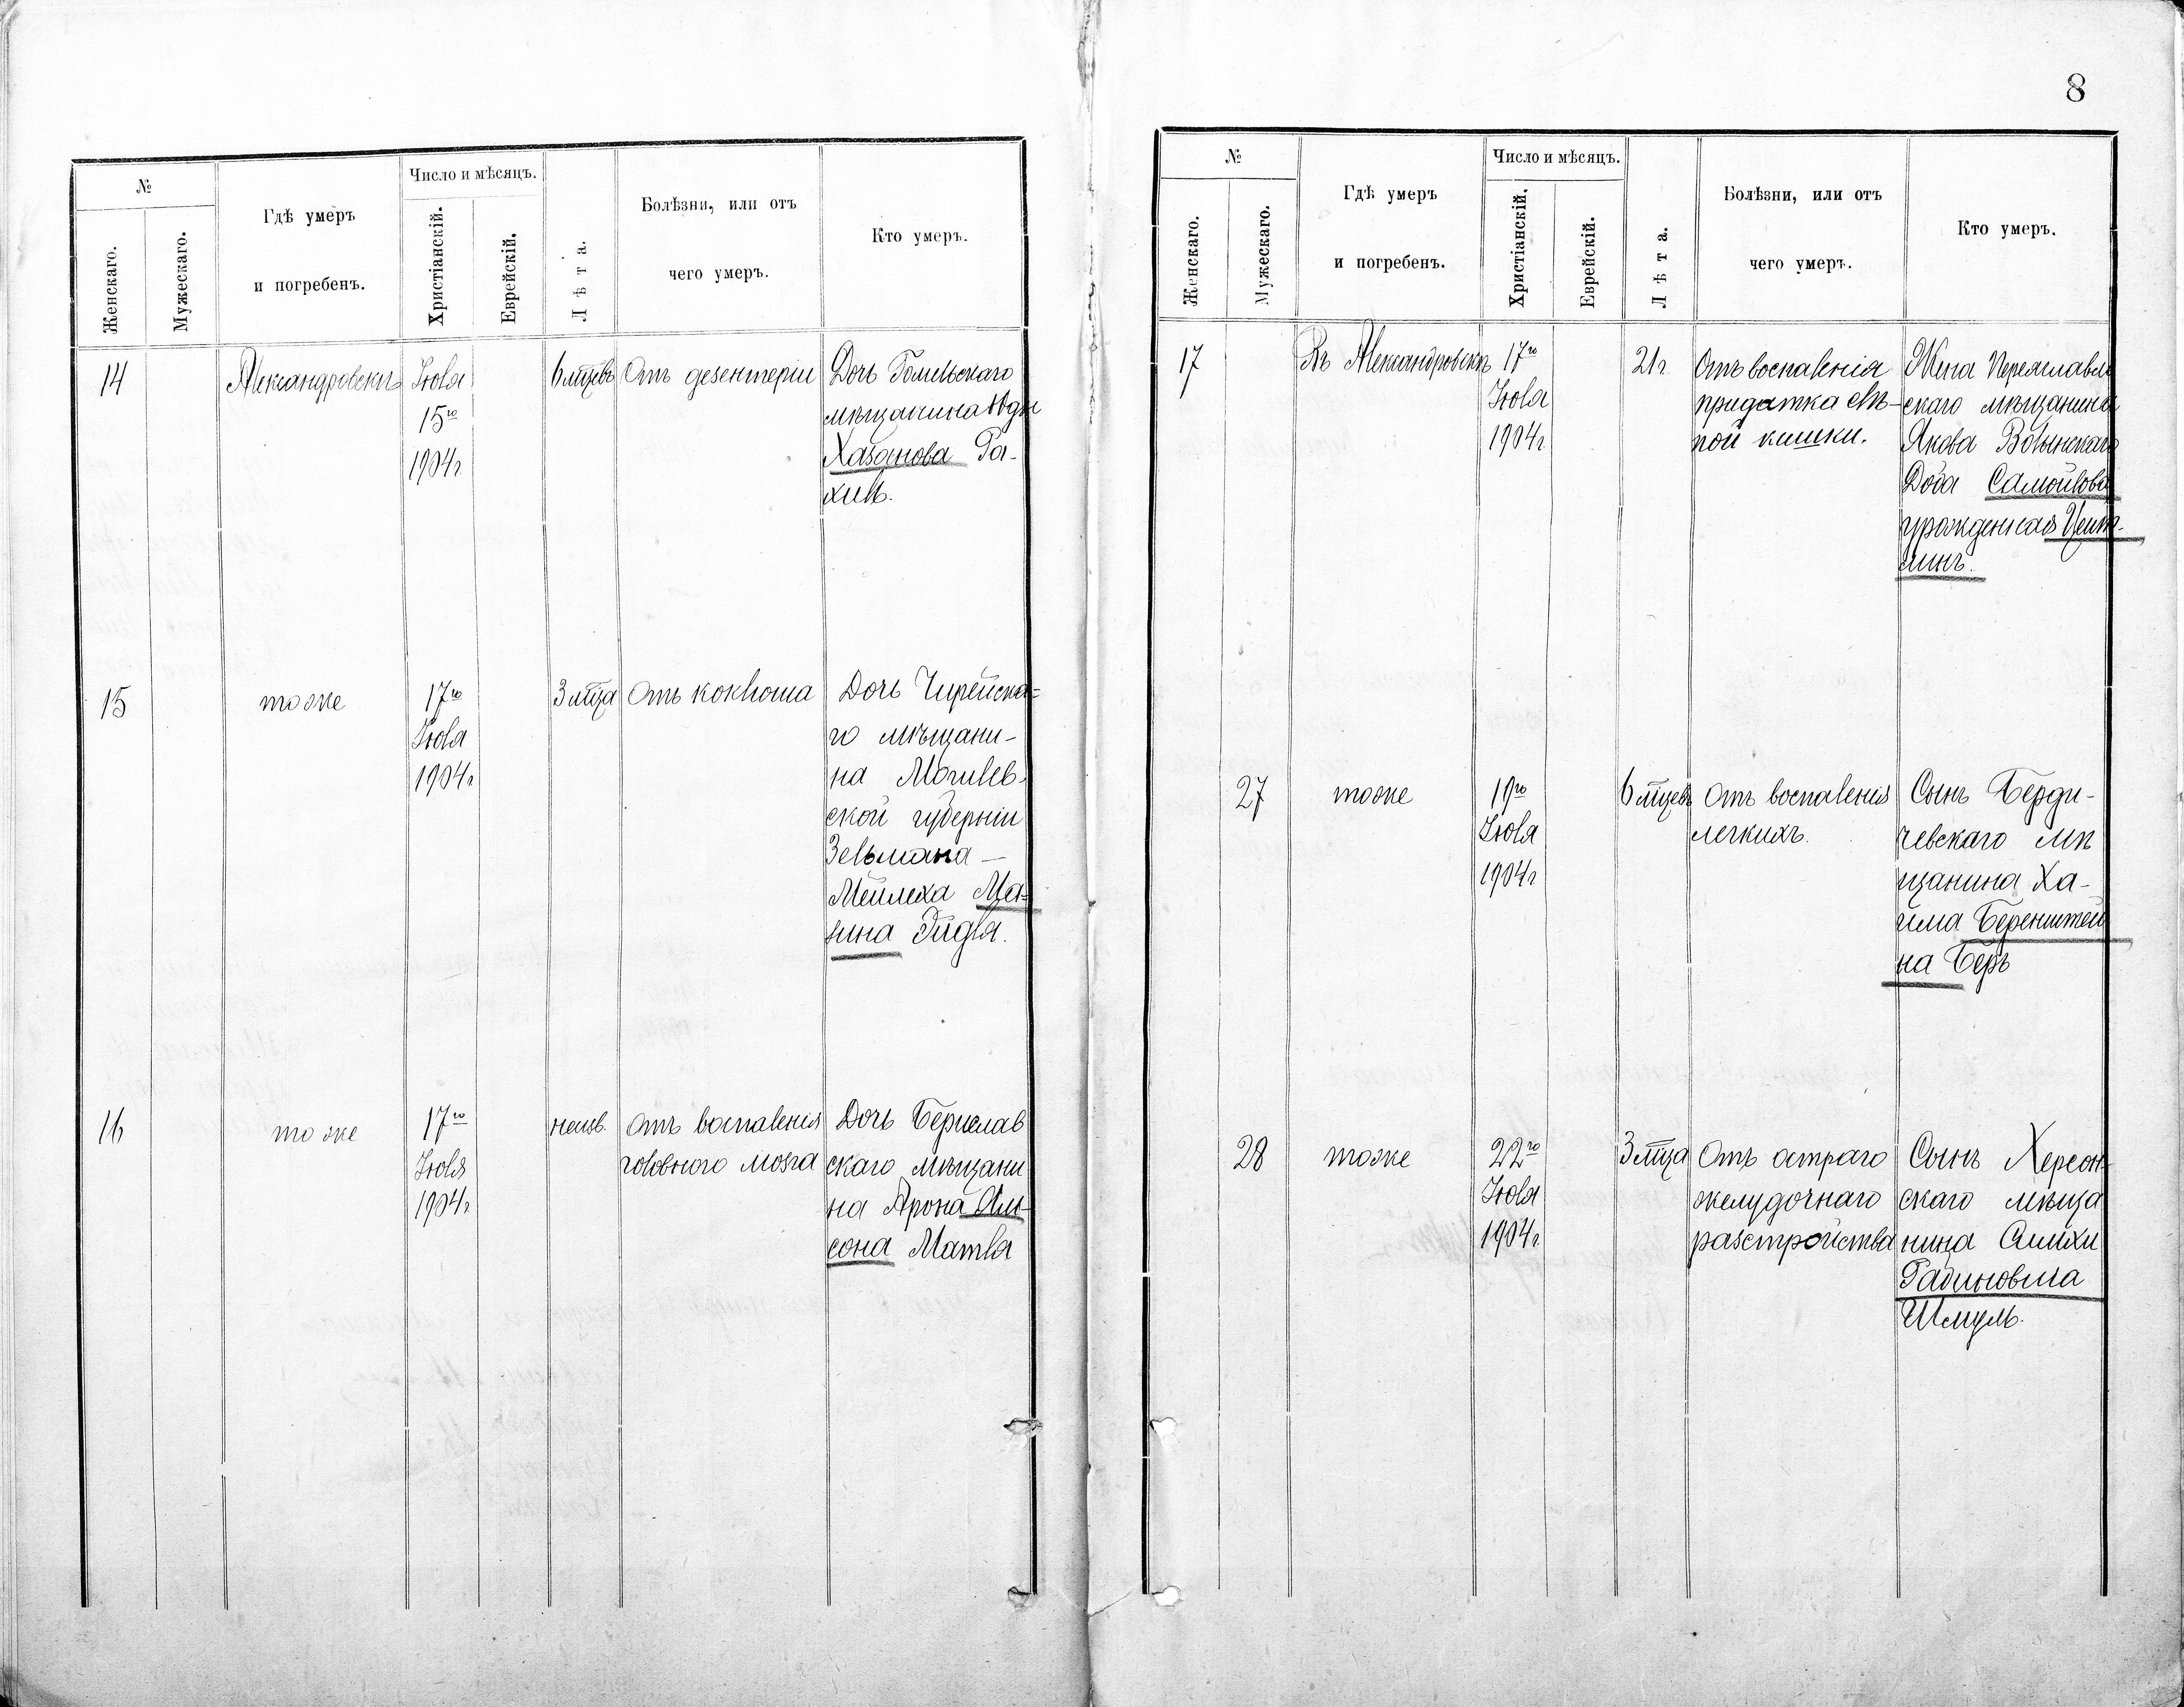 №
Женскаго.
Мужескаго.
Гдѣ умеръ
и погребенъ.
Число и мѣсяцъ.
Христіанскій.
Еврейскій.
Лѣта.
Болѣзни, или отъ
чего умеръ.
Кто умеръ.
14
Александровскъ
Іюля
15го
1904г.
6 мцевъ
Отъ дезентеріи
Дочь Гомельскаго
мѣщанина Юды
Хазанова Ра-
хиль.
15
тоже
17го
Іюля
1904г
3 мца
Отъ коклюша
Дочь Чирейска=
го мѣщани-
на Могилев-
ской губерніи
Зельмана —
Мейлеха Ма=
зина Эйдля.
16
тоже
17го
Іюля
1904г
неизв.
Отъ воспаленія
головного мозга
Дочь Берислав
скаго мѣщани
на Арона
сона Матля
8
№
Женскаго.
Мужескаго.
Гдѣ умеръ
и погребенъ.
Число и мѣсяцъ.
Христіанскій.
Еврейскій.
Лѣта.
Болѣзни, или отъ
чего умеръ.
Кто умеръ.
17
Въ Александровскъ
17го
Іюля
1904г.
21г.
Отъ воспаленія
придатка слѣ-
пой кишки.
Жена Переяславль
скаго мѣщанина
Якова Волынскаго
Доба Самойлова
урожденная Цейт-
линъ.
27
тоже
19го
Іюля
1904г
6 мцевъ
Отъ воспаленія
легкихъ.
Сынъ Берди-
чевскаго мѣ
щанина Ха-
има Беренштей
на Беръ
28
тоже
22го
Іюля
1904г
3 мца
Отъ остраго
желудочнаго
разстройства
Сынъ Херсон-
скаго мѣща
нина Симхи
Рабиновича
Шмуль.